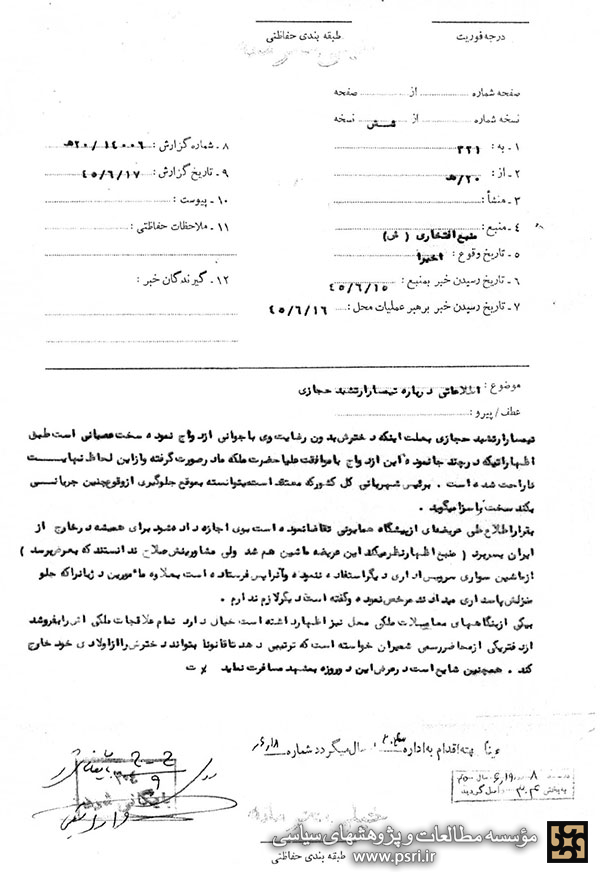 درجه فوریت
طبقه بندی حفاظتی
صفحه شماره ............ از ............ صفحه
نسخه شماره ............ از شش نسخه
۱ ـ به : ۳۲۱
۲ ـ از : ۲۰/هـ
۳ ـ منشأ :
۴ ـ منبع : منبع افتخاری ( ش )
۵ ـ تاریخ وقوع : اخیرا
۶ ـ تاریخ رسیدن خبر بمنبع : ۴۵/۶/۱۵
۷ ـ تاریخ رسیدن خبر برهبر عملیات محل : ۴۵/۶/۱۶
۸ ـ شماره گزارش : ۱۴۰۰۶ /۲۰هـ
۹ ـ تاریخ گزارش : ۴۵/۶/۱۷
۱۰ ـ پیوست :
۱۱ ـ ملاحظات حفاظتی :
۱۲ ـ گیرندگان خبر :
موضوع : اطلاعاتی درباره تیمسار ارتشبد حجازی
عطف / پیرو :
تیمسار ارتشبد حجازی بعلت اینکه دخترش بدون رضایت وی با جوانی ازدواج نموده سخت عصبانی است طبق
اظهاراتیکه در چند جا نموده این ازدواج با موافقت علیاحضرت ملکه مادر صورت گرفته و از این لحاظ نهایت
ناراحت شده است . برئیس شهربانی کل کشور که معتقد است میتوانسته بموقع جلوگیری از وقوع چنین جریانی
بکند سخت ناسزا میگوید .
بقرار اطلاع طی عریضه‌ای از پیشگاه همایونی تقاضا نموده است بوی اجازه داده شود برای همیشه در خارج از
ایران بسر برد ( منبع اظهار نظر میکند این عریضه ماشین هم شد ولی مشاورینش صلاح ندانستند که بعرض برسد )
از ماشین سواری سرویس اداری دیگر استفاده ننموده و آنرا پس فرستاده است بعلاوه مامورین دژبانرا که جلو
منزلش پاسداری میدادند مرخص نموده و گفته است دیگر لازم ندارم .
بیکی از بنگاههای معاملات ملکی محل نیز اظهار داشته است خیال دارد تمام علاقجات ملکی اش را بفروشد
از دفتر یکی از محاضر رسمی شمیران خواسته است که ترتیبی دهد تا قانونا بتواند دخترش را از اولادی خود خارج
کند . همچنین شایع است در عرض این دو روزه بمشهد مسافرت نماید ت
جهت اقدام به اداره
میگردد شماره
بایگانی شود
به بخش ۳۰۴ واصل گردید
طبقه بندی حفاظتی
مؤسسه مطالعات و پژوهشهای سیاسی
www.psri.ir